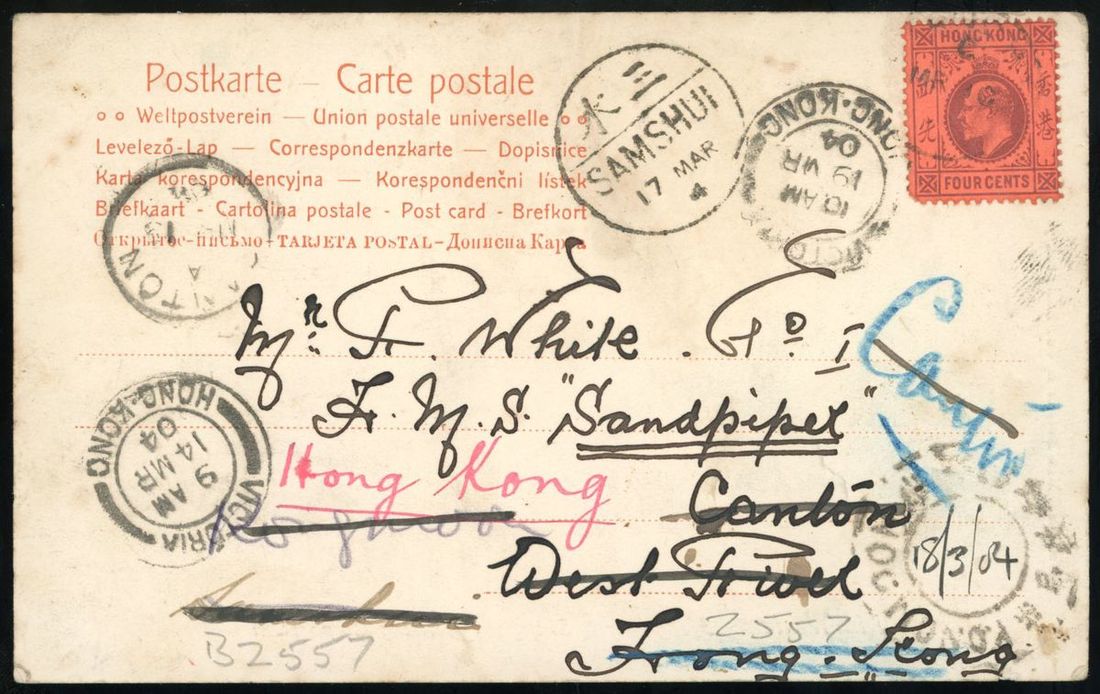 HONG KONG
FOUR CENTS
Postkarte – Carte postale
Weltpostverein – Union postale universelle
Levelező-Lap – Correspondenzkarte – Dopisnice
Karta korespondencyjna – Korespondenční lístek
Briefkaart - Cartolina postale - Post card - Brefkort
Открытое-письмо-TARJETA POSTAL-Дописна Карта
三水
SAMSHUI
17 MAR
4
VICTORIA HONG-KONG
10 AM
19 MR
04
CANTON
Mr. F. White. Po I
H. M. S. "Sandpiper"
Canton
Hong Kong
Canton
West River
Hong-Kong
VICTORIA HONG-KONG
9 AM
14 MR
04
18/3/04
B2557
2557